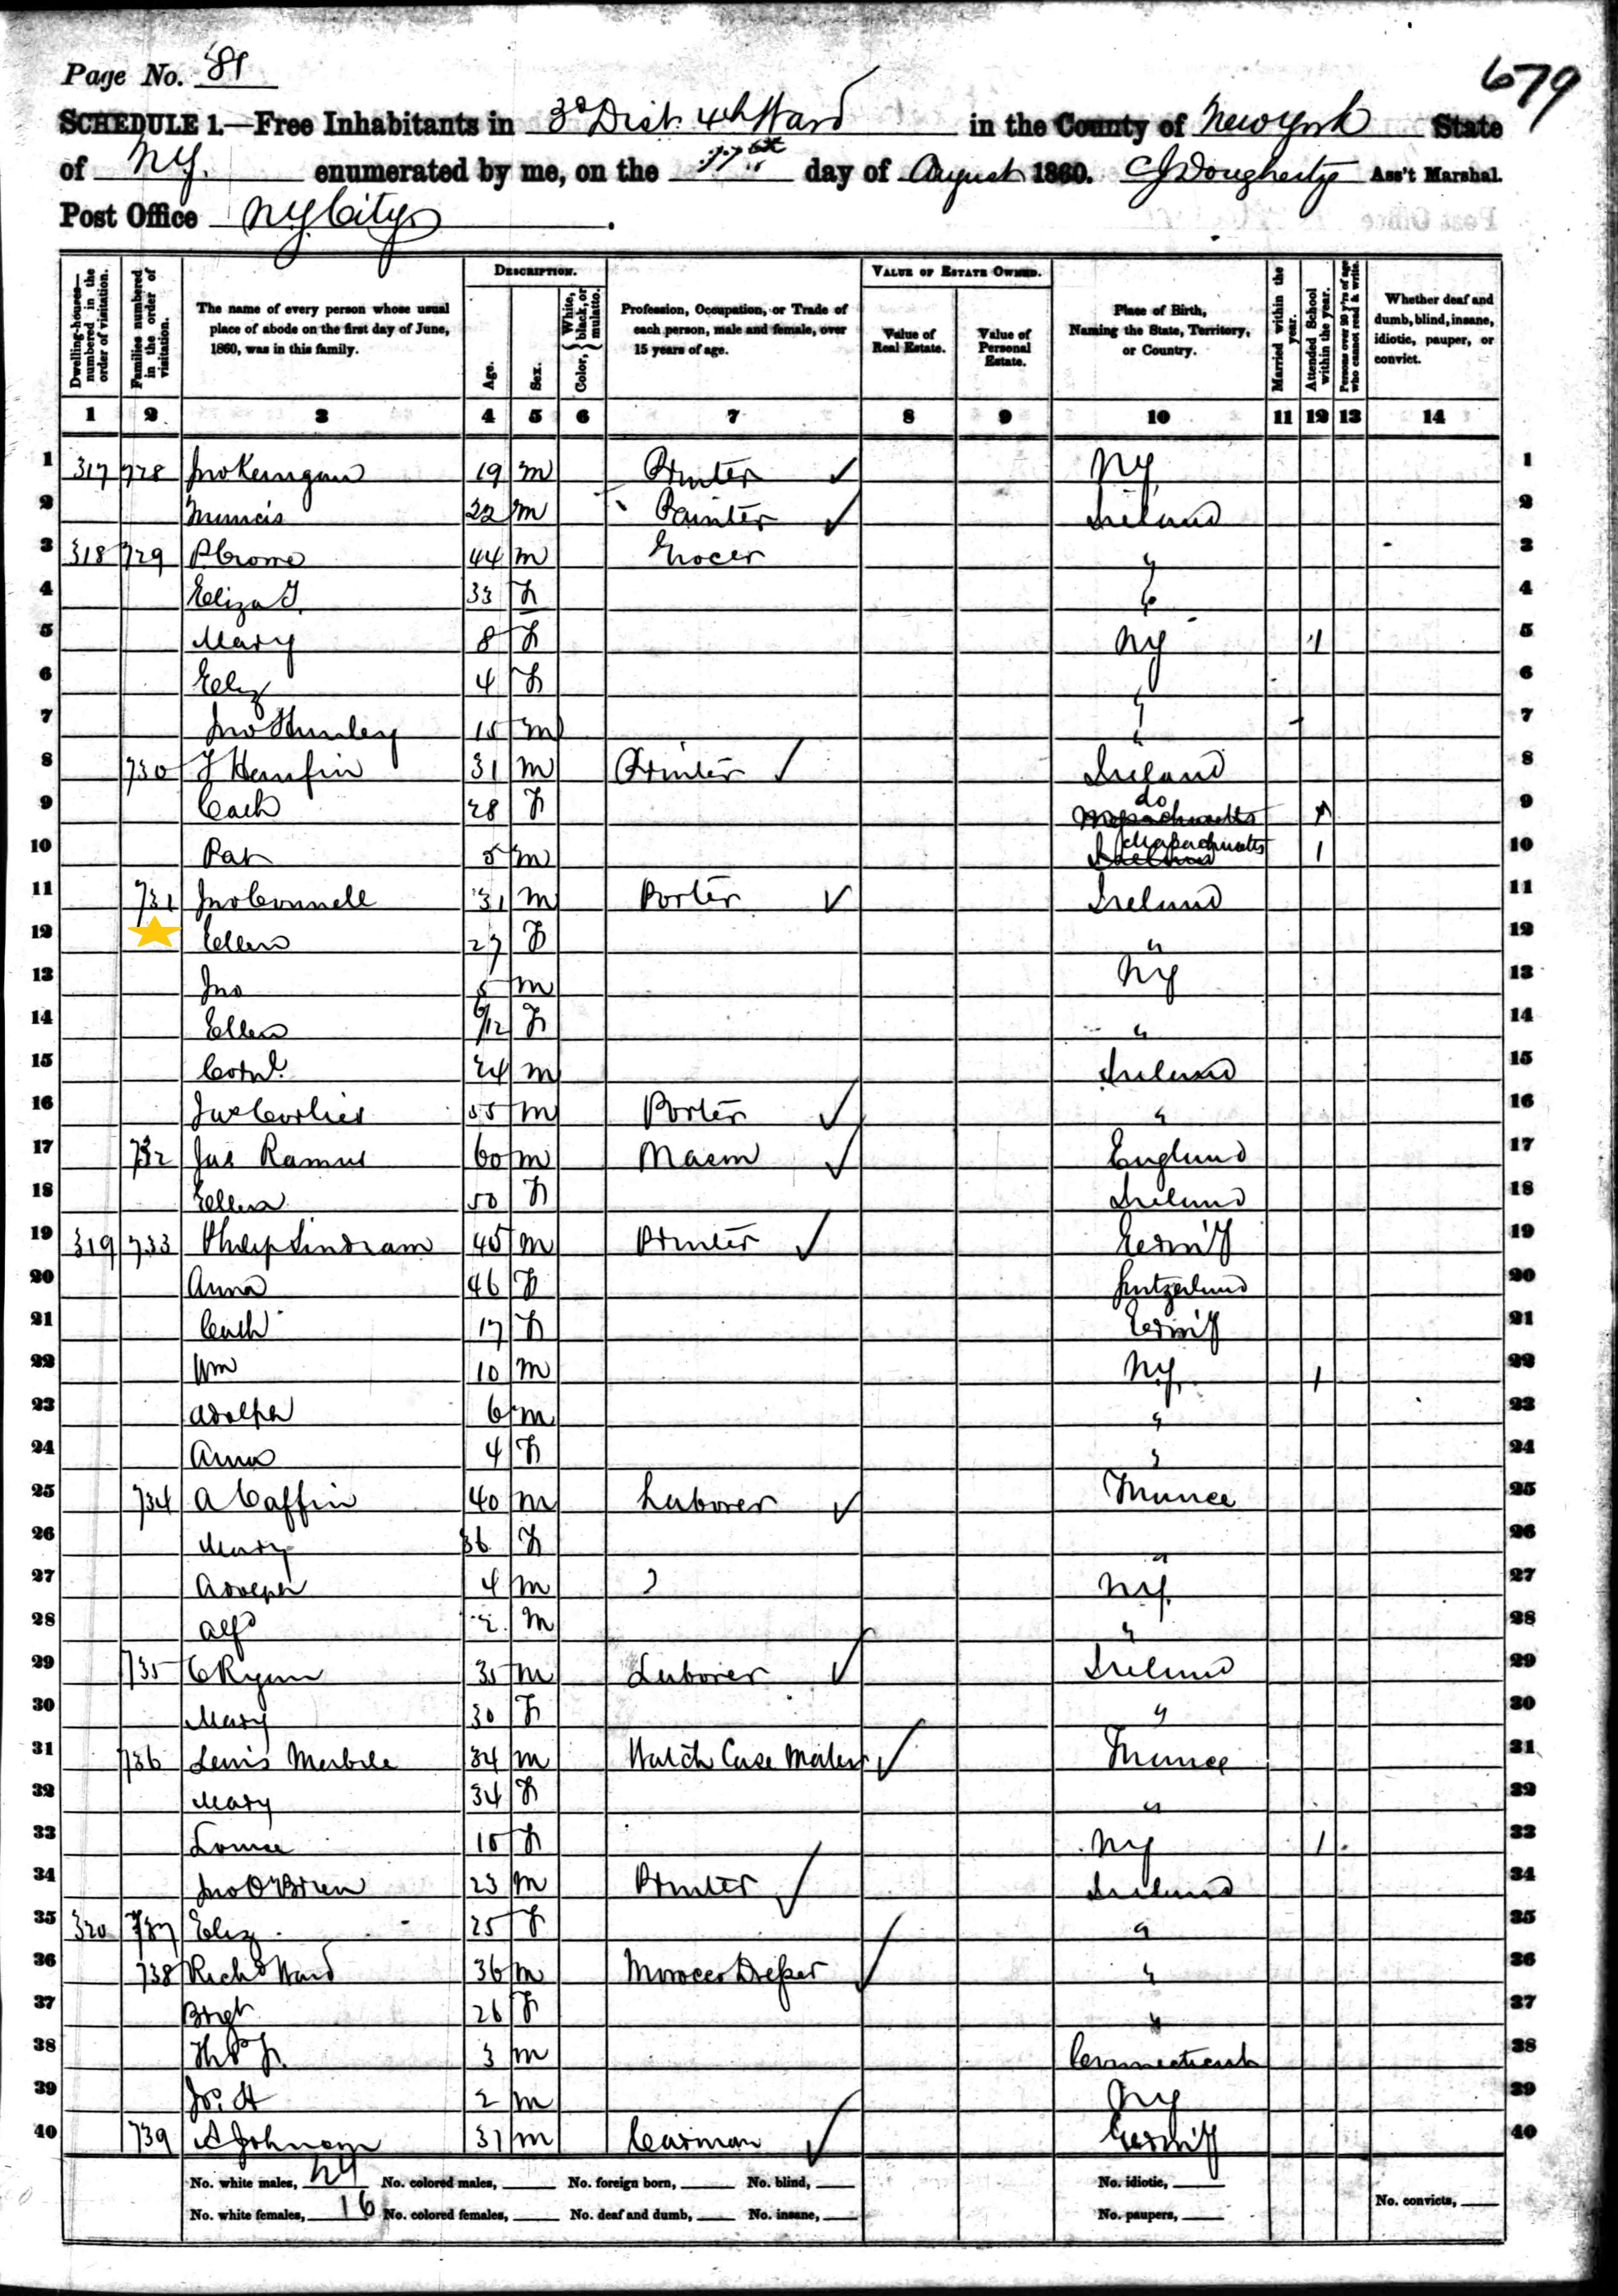 Page No. 81
679
SCHEDULE 1.—Free Inhabitants in 3d Dist. 4th Ward in the County of New York State
of N.Y. enumerated by me, on the day of August 1860. C J Dougherty Ass't Marshal.
Post Office N.Y. City.
DESCRIPTION. VALUE OF ESTATE OWNED.
Dwelling-houses—numbered in the order of visitation. Families numbered in the order of visitation. The name of every person whose usual place of abode on the first day of June, 1860, was in this family. Age. Sex. Color, { White, black, or mulatto. Profession, Occupation, or Trade of each person, male and female, over 15 years of age. Value of Real Estate. Value of Personal Estate. Place of Birth, Naming the State, Territory, or Country. Married within the year. Attended School within the year. Persons over 20 y'rs of age who cannot read & write. Whether deaf and dumb, blind, insane, idiotic, pauper, or convict.
1 2 3 4 5 6 7 8 9 10 11 12 13 14
1 317 728 Jno Kerrigan 19 m Printer N.Y. 1
2 Francis 22 m Painter Ireland 2
3 318 729 P. Crome 44 m Grocer " 3
4 Eliza J. 33 F " 4
5 Mary 8 F NY 1 5
6 Eliz 4 F " 6
7 Jno Hurley 15 m " 7
8 730 31 m Printer Ireland 8
9 Cath 28 F do Massachusetts 9
10 Pat 5 m Ireland Massachusetts 1 10
11 731 Jno Connell 31 m Porter Ireland 11
12 Ellen 27 F " 12
13 Jno 5 m NY 13
14 Ellen 6/12 F " 14
15 Corn'l. 24 m Ireland 15
16 Jas Corlies 55 m Porter " 16
17 732 Jas Ramus 60 m Mason England 17
18 Ellen 50 F Ireland 18
19 319 733 Philip Lindram 45 m Printer Germ'y 19
20 Anna 46 F Switzerland 20
21 Cath 17 F Germ'y 21
22 Wm 10 m N.Y. 1 22
23 Adolph 6 m " 23
24 Anna 4 F " 24
25 734 A Caffin 40 m Laborer France 25
26 Mary 36 F " 26
27 Adolph 4 m N.Y. 27
28 Alfd 2 m " 28
29 735 C Ryan 35 m Laborer Ireland 29
30 Mary 30 F " 30
31 736 Lewis Merbile 34 m Watch Case Maker France 31
32 Mary 34 F " 32
33 Louise 10 F NY 1 33
34 Jno O'Brien 23 m Printer Ireland 34
35 320 737 Eliz 25 F " 35
36 738 Richd Ward 36 m Morocco Dresser " 36
37 Brigt 26 F " 37
38 3 m Connecticut 38
39 Jos. H 2 m NY 39
40 739 A Johnson 31 m Carman Germ'y 40
No. white males, 24 No. colored males, No. foreign born, No. blind, No. idiotic,
No. white females, 16 No. colored females, No. deaf and dumb, No. insane, No. paupers, No. convicts,